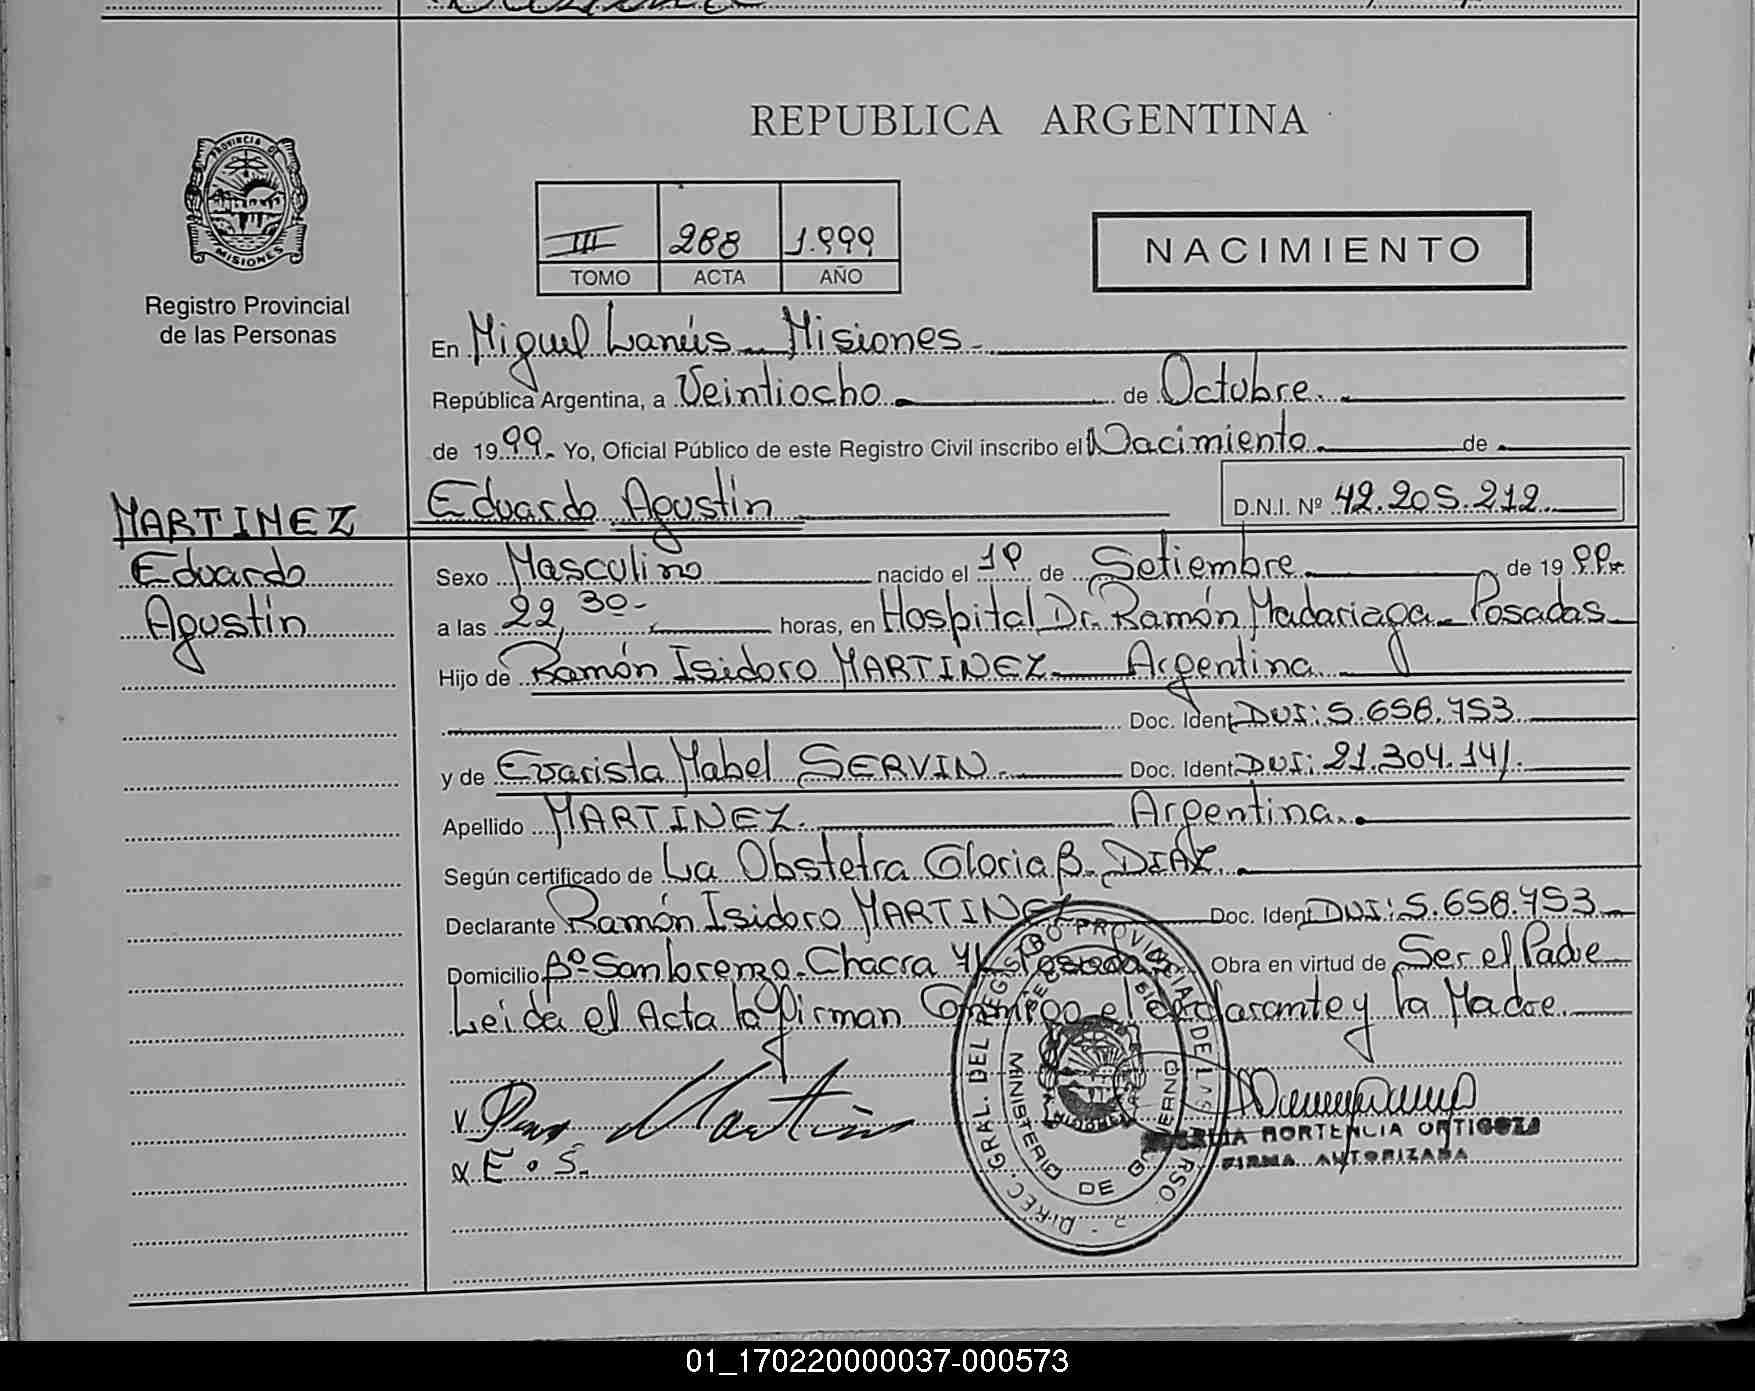 REPUBLICA ARGENTINA
PROVINCIA DE
MISIONES
Registro Provincial
de las Personas
III 268 1.999
TOMO ACTA AÑO
NACIMIENTO
En Miguel Lanús - Misiones -
República Argentina, a Veintiocho de Octubre.
de 1999. Yo, Oficial Público de este Registro Civil inscribo el Nacimiento de
Eduardo Agustín D.N.I. Nº 42.205.212
MARTINEZ
Eduardo
Agustín
Sexo Masculino nacido el 19 de Setiembre de 1999.
a las 22,30- horas, en Hospital Dr. Ramón Madariaga - Posadas -
Hijo de Ramón Isidoro MARTINEZ Argentina
Doc. Ident DNI: 5.658.753
y de Evarista Mabel SERVIN. Doc. Ident DNI: 21.304.141.
Apellido MARTINEZ. Argentina.
Según certificado de La Obstetra Gloria B. DIAZ.
Declarante Ramón Isidoro MARTINEZ Doc. Ident DNI: 5.658.753
Domicilio Bº San Lorenzo - Chacra Posadas Obra en virtud de Ser el Padre
Leida el Acta la firman Conmigo el declarante y la Madre.
Martin
E. S.
DIREC. GRAL. DEL REGISTRO PROVINCIAL DE LAS PERSO
MINISTERIO DE GOBIERNO
HORTENCIA ORTIGOZA
FIRMA AUTORIZADA
01_170220000037-000573